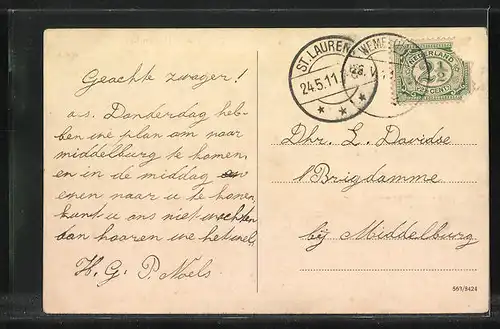 Geachte zwager!
a.s. Donderdag heb-
ben we plan om naar
middelburg te komen.
en in de middag
even naar u te komen,
kunt u ons niet wachten
dan hooren we het wel,
H. G. P. Noels
ST. LAURENS
24.5.11
NEDERLAND
2½
CENT
Dhr. L. Davidse
Brigdamme
bij Middelburg
563/8424